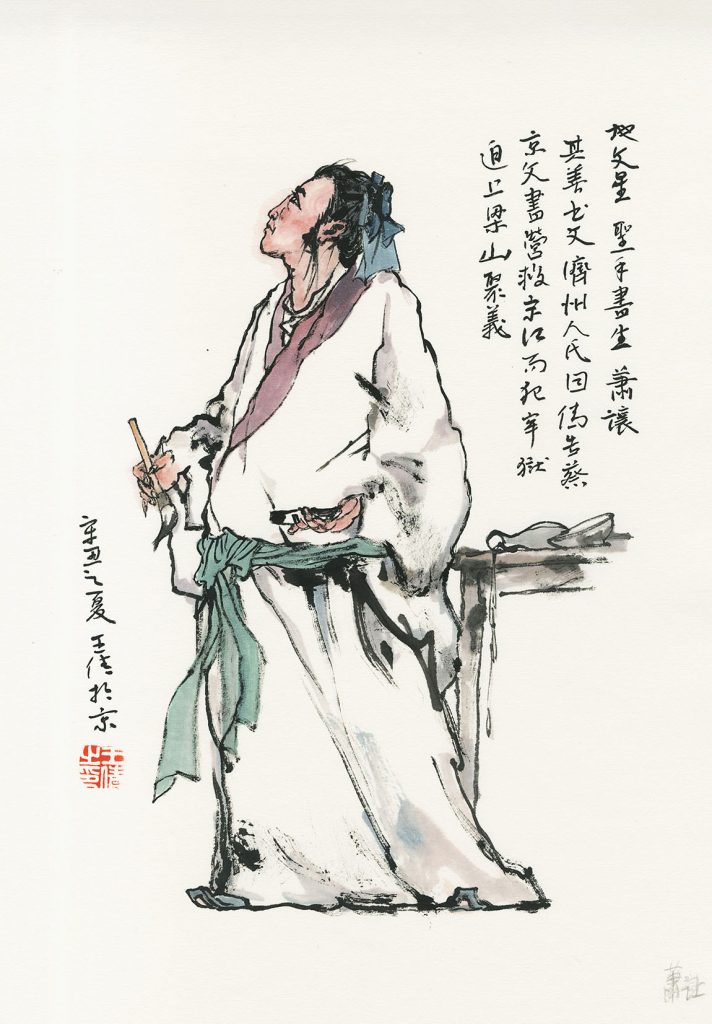 地文星 聖手書生 蕭讓
其善书文濟州人氏因偽告蔡
京文書營救宋江而犯牢獄
迫上梁山聚義
辛丑之夏 王於京
蕭让